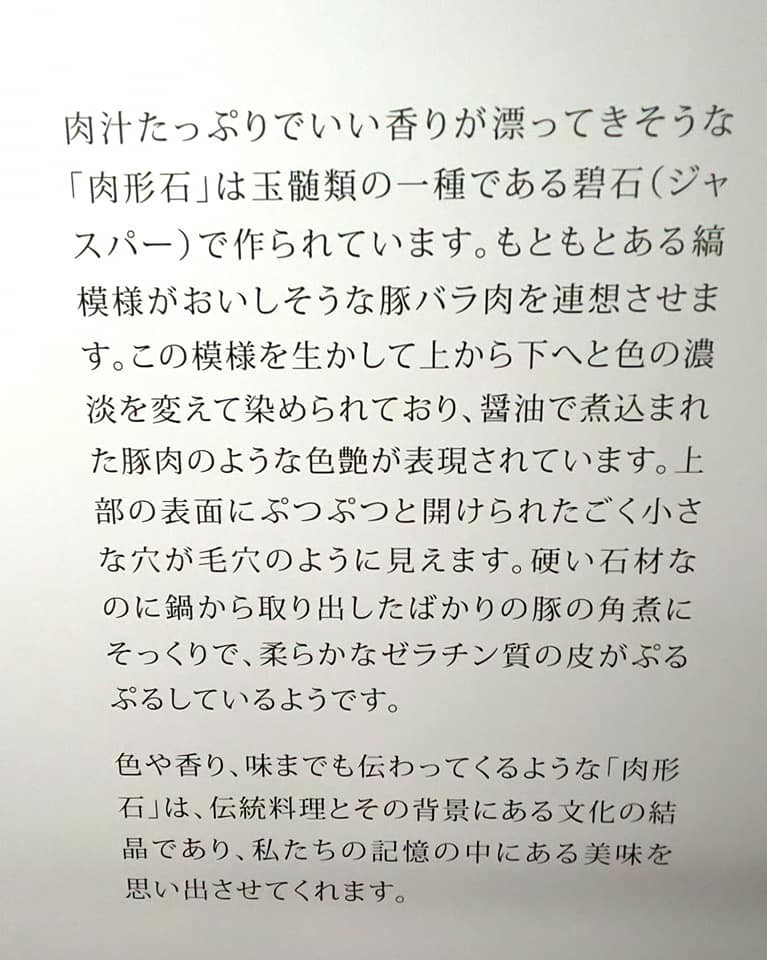 肉汁たっぷりでいい香りが漂ってきそうな
「肉形石」は玉髄類の一種である碧石(ジャ
スパー)で作られています。もともとある縞
模様がおいしそうな豚バラ肉を連想させま
す。この模様を生かして上から下へと色の濃
淡を変えて染められており、醤油で煮込まれ
た豚肉のような色艶が表現されています。上
部の表面にぷつぷつと開けられたごく小さ
な穴が毛穴のように見えます。硬い石材な
のに鍋から取り出したばかりの豚の角煮に
そっくりで、柔らかなゼラチン質の皮がぷる
ぷるしているようです。
色や香り、味までも伝わってくるような「肉形
石」は、伝統料理とその背景にある文化の結
晶であり、私たちの記憶の中にある美味を
思い出させてくれます。